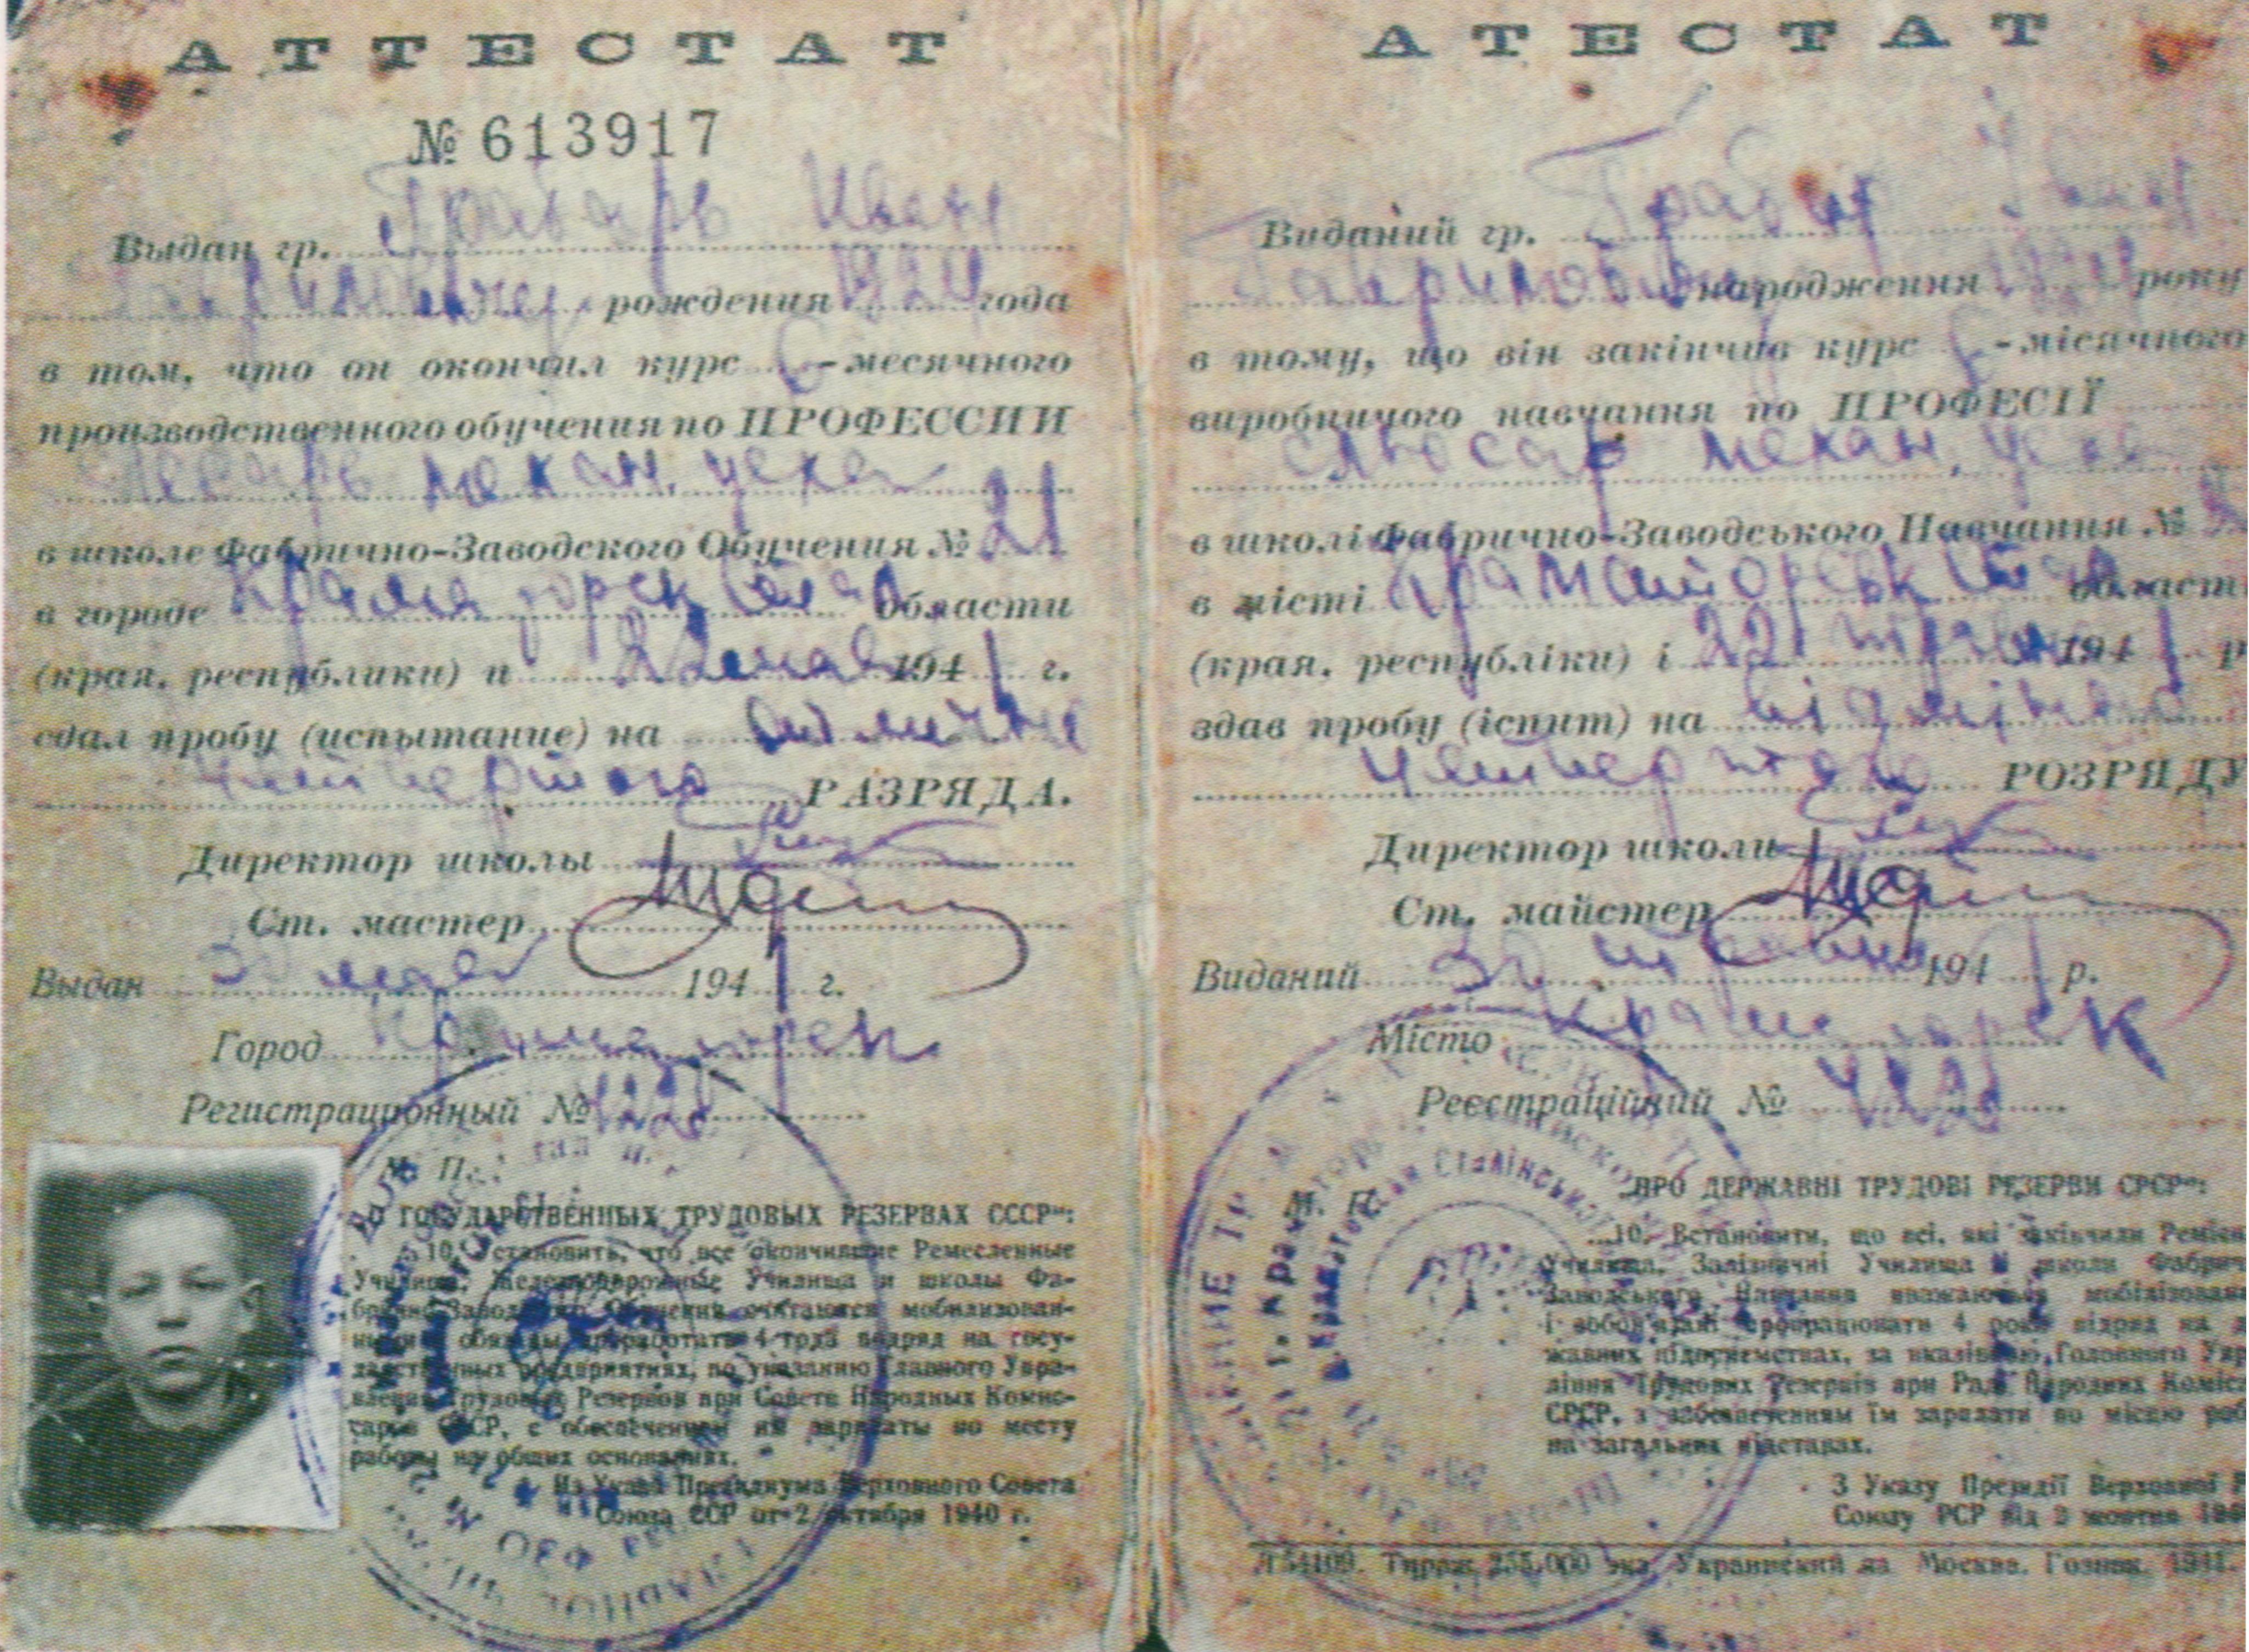 АТТЕСТАТ
№ 613917
Выдан гр. Грабарь Иван
рождения 1924 года
в том, что он окончил курс 6 -месячного
производственного обучения по ПРОФЕССИИ
механ. цеха
в школе Фабрично-Заводского Обучения № 21
в городе Краматорск Стал. области
(края, республики) и 22 мая 1941 г.
сдал пробу (испытание) на отлично
четвертого РАЗРЯДА.
Директор школы
Ст. мастер
Выдан 30 мая 1941 г.
Город Краматорск
Регистрационный №
М. П.
"О ГОСУДАРСТВЕННЫХ ТРУДОВЫХ РЕЗЕРВАХ СССР":
10. Установить, что все окончившие Ремесленные
Училища, Железнодорожные Училища и школы Фа-
брично-Заводского Обучения считаются мобилизован-
ными и обязаны проработать 4 года подряд на госу-
дарственных предприятиях, по указанию Главного Упра-
вления Трудовых Резервов при Совете Народных Комис-
саров СССР, с обеспечением им зарплаты по месту
работы на общих основаниях.
Из Указа Президиума Верховного Совета
Союза ССР от 2 октября 1940 г.
АТЕСТАТ
Виданий гр. Грабар
Гавриловичу народження 1924 року
в тому, що він закінчив курс 6 -місячного
виробничого навчання по ПРОФЕСІЇ
слюсар механ. цеха
в школі Фабрично-Заводського Навчання №
в місті Краматорськ Стал. област
(края, республіки) і 22 травня 1941 р
здав пробу (іспит) на відмінно
четвертого РОЗРЯДУ
Директор школи
Ст. майстер
Виданий 30 травня 1941 р.
Місто Краматорск
Реєстраційний №
М. П.
"ПРО ДЕРЖАВНІ ТРУДОВІ РЕЗЕРВИ СРСР":
...10. Встановити, що всі, які закінчили Реміс
Училища, Залізничні Училища і школи Фабрич
Заводського Навчання вважаються мобілізован
і зобов'язані пропрацювати 4 роки підряд на
жавних підприємствах, за вказівкою Головного Упр
ління Трудових Резервів при Раді Народних Коміс
СРСР, з забезпеченням їм зарплати по місцю роб
на загальних підставах.
З Указу Президії Верховної Р
Союзу РСР від 2 жовтня 194
Тираж 255.000 экз. Украинский яз. Москва. Гознак. 1941.